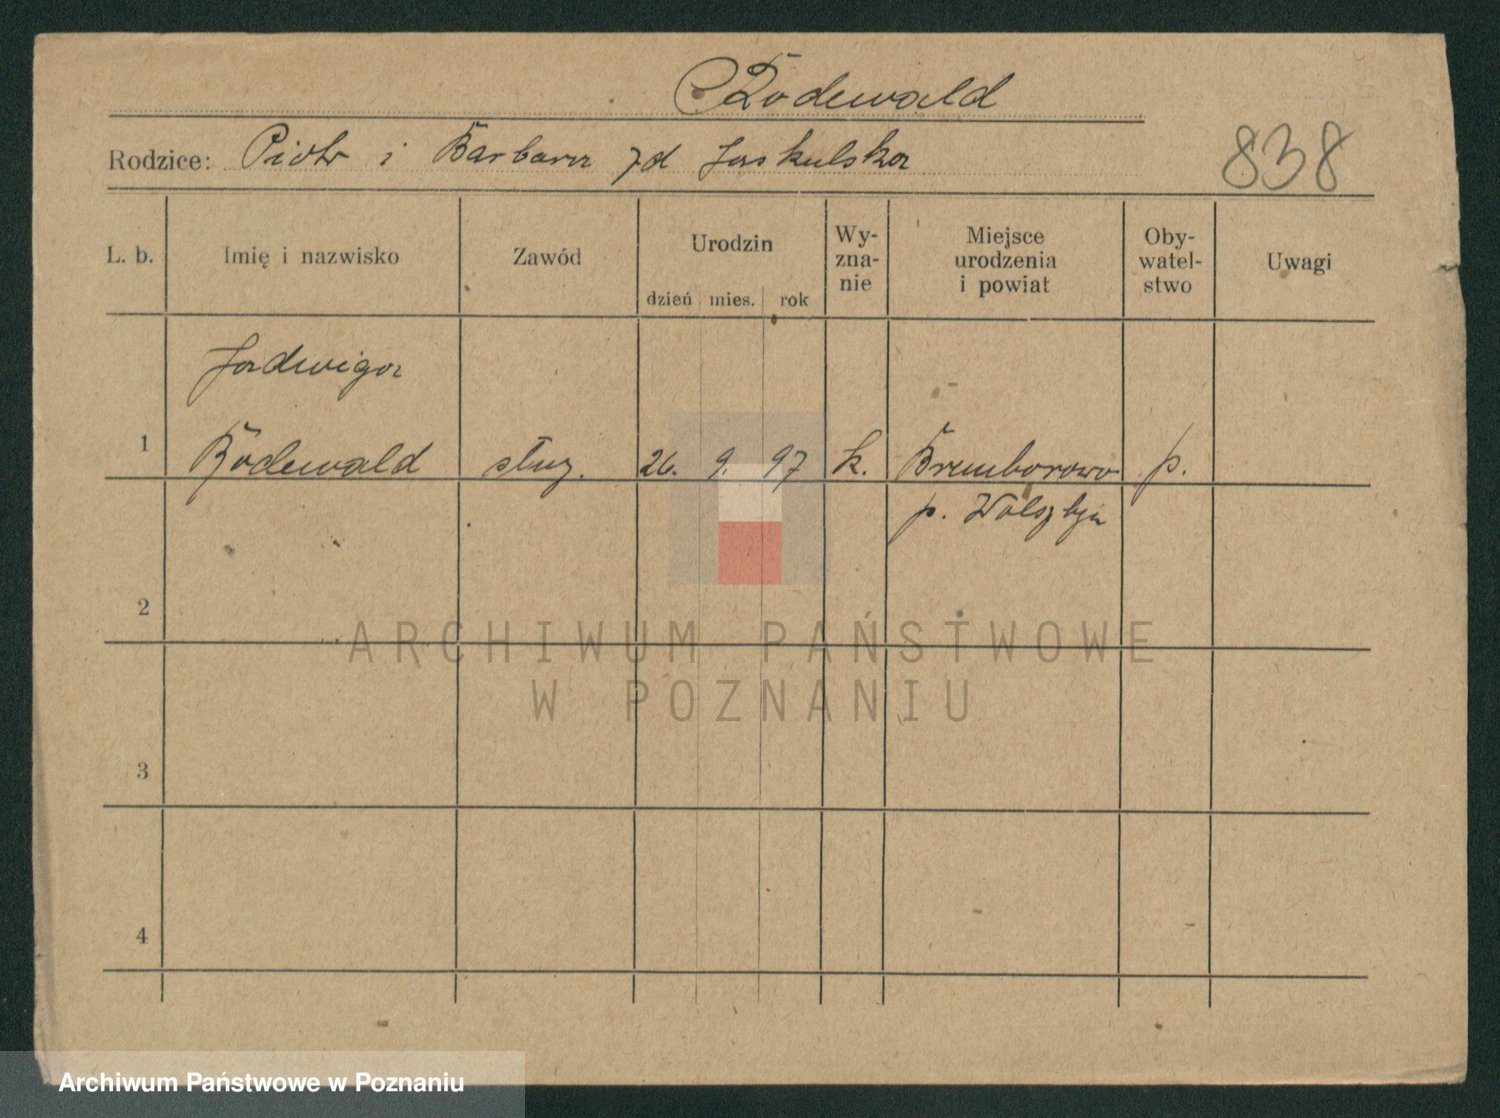 Rodewald
Rodzice: Piotr i Barbara zd Jaskulska
838
L. b. Imię i nazwisko Zawód Urodzin Wy-zna-nie Miejsce urodzenia i powiat Oby-watel-stwo Uwagi
dzień mies. rok
Jadwiga
1 Rodewald służ. 26. 9. 97 k. p.
p. Wolsztyn
2
ARCHIWUM PAŃSTWOWE
W POZNANIU
3
4
Archiwum Państwowe w Poznaniu